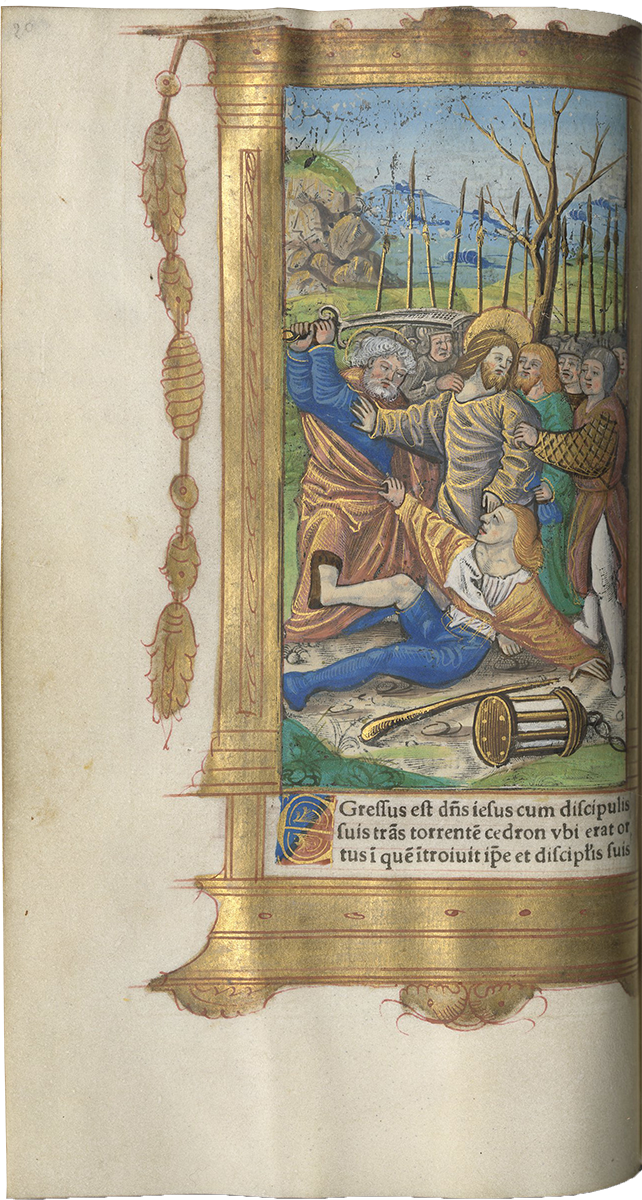 20
EGressus est dñs iesus cum discipulis
suis trãs torrentẽ cedron vbi erat or
tus ĩ quẽ ĩtroiuit ip̃e et discipl̃is suis